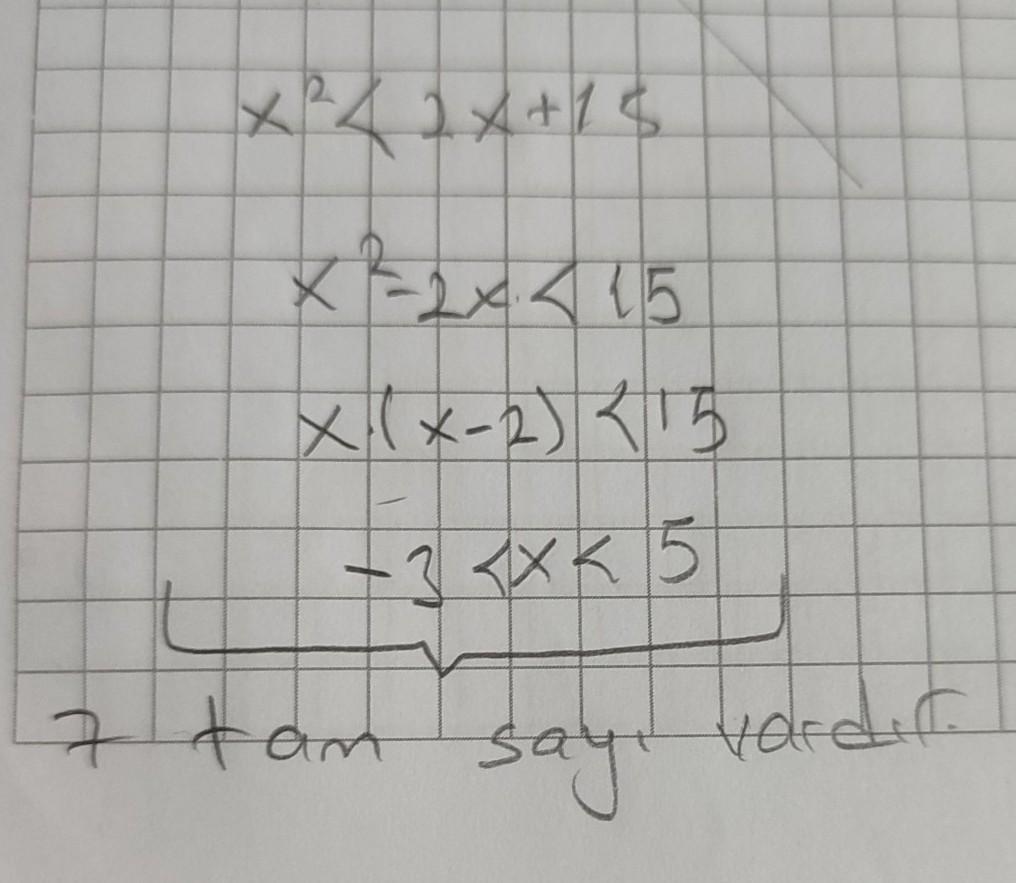 x² < 2x+15
x²-2x < 15
x.(x-2) < 15
-3 < x < 5
7 tam sayı vardır.